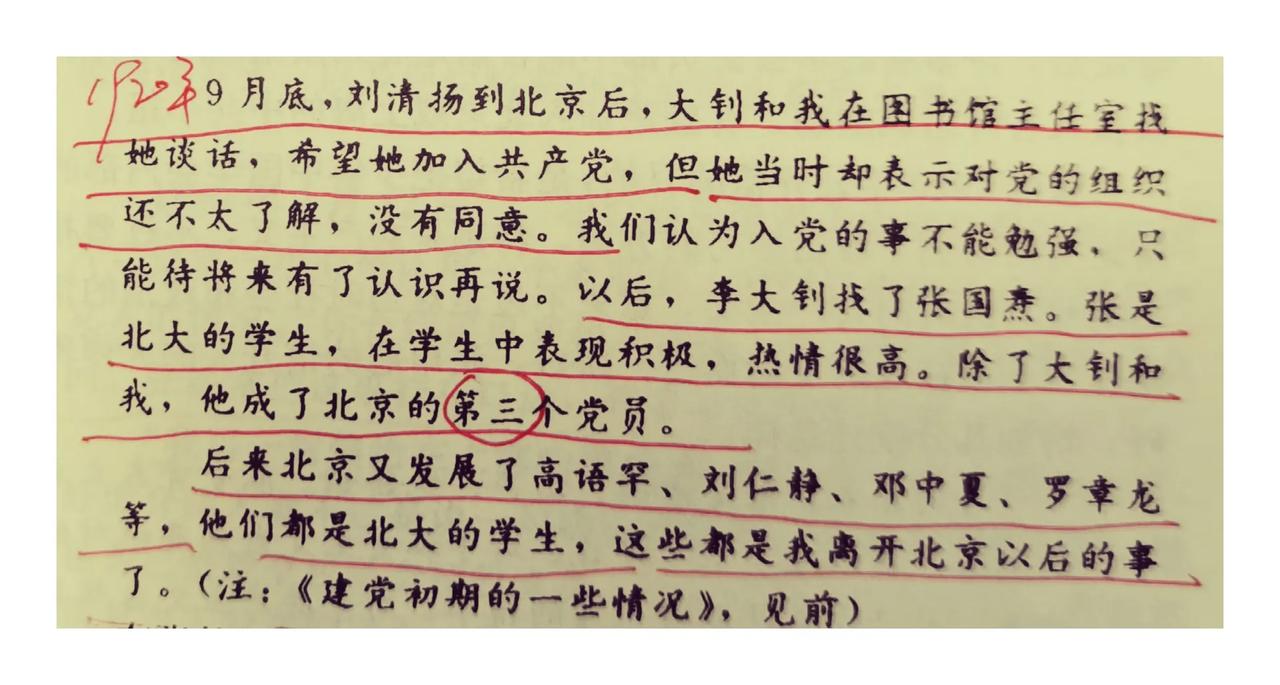 1920年9月底，刘清扬到北京后，大钊和我在图书馆主任室找
她谈话，希望她加入共产党，但她当时却表示对党的组织
还不太了解，没有同意。我们认为入党的事不能勉强，只
能待将来有了认识再说。以后，李大钊找了张国焘。张是
北大的学生，在学生中表现积极，热情很高。除了大钊和
我，他成了北京的第三个党员。
后来北京又发展了高语罕、刘仁静、邓中夏、罗章龙
等，他们都是北大的学生，这些都是我离开北京以后的事
了。（注：《建党初期的一些情况》，见前）